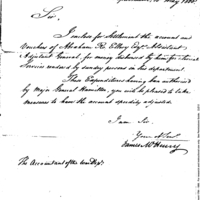 Sir,
I enclose for Settlement the account and
Vouchers of Abraham R. Ellery Esqr. Assistant
Adjutant General, for money disbursed by him for
Services rendered by sundry persons in his department.
This Expenditure having been authorised
by Major General Hamilton, you will be pleased to take
measures to have the account speedily adjusted.
I am Sir,
Your
James McHenry
The Accountant of the War Dept.